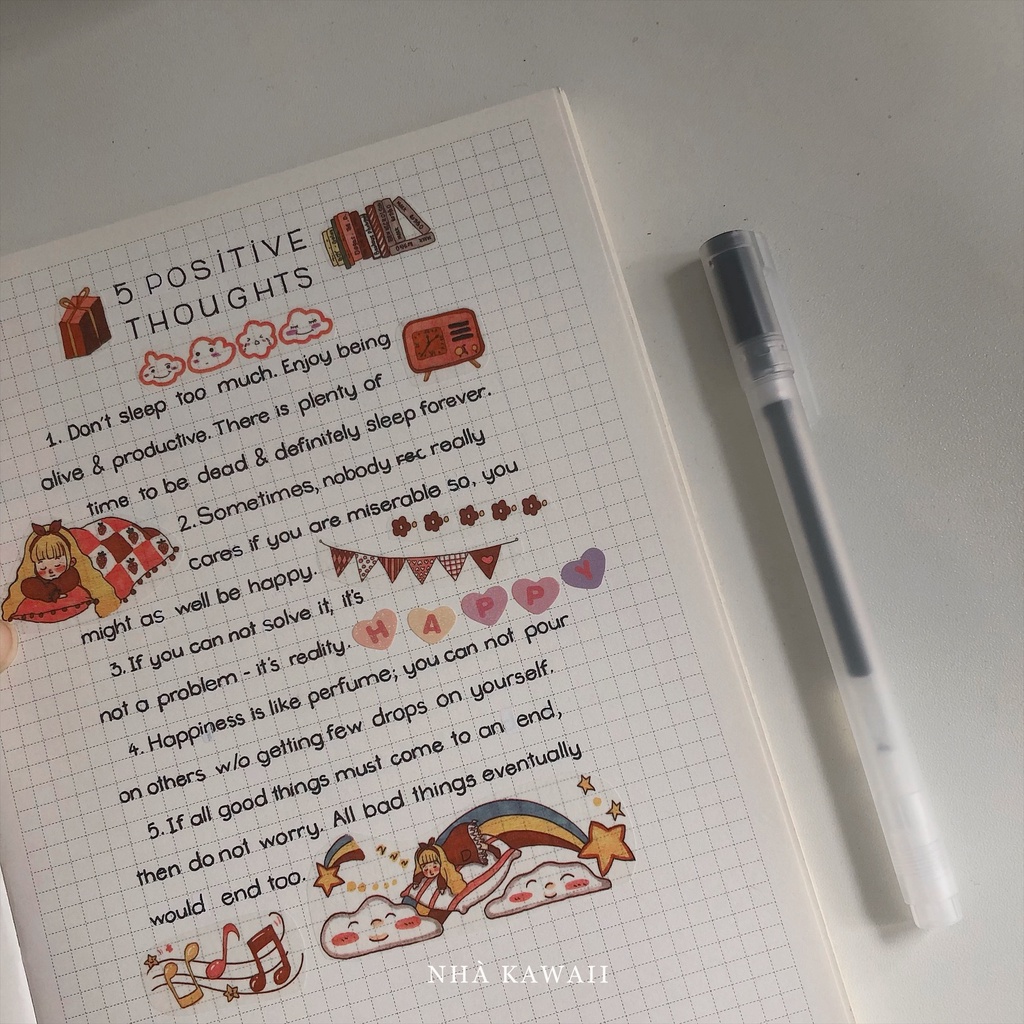 5 POSITIVE
THOUGHTS
1. Don't sleep too much. Enjoy being
alive & productive. There is plenty of
time to be dead & definitely sleep forever.
2. Sometimes, nobody really
cares if you are miserable so, you
might as well be happy.
3. If you can not solve it, it's
not a problem - it's reality.
HAPPY
4. Happiness is like perfume; you can not pour
on others w/o getting few drops on yourself.
5. If all good things must come to an end,
then do not worry. All bad things eventually
would end too.
NHÀ KAWAII